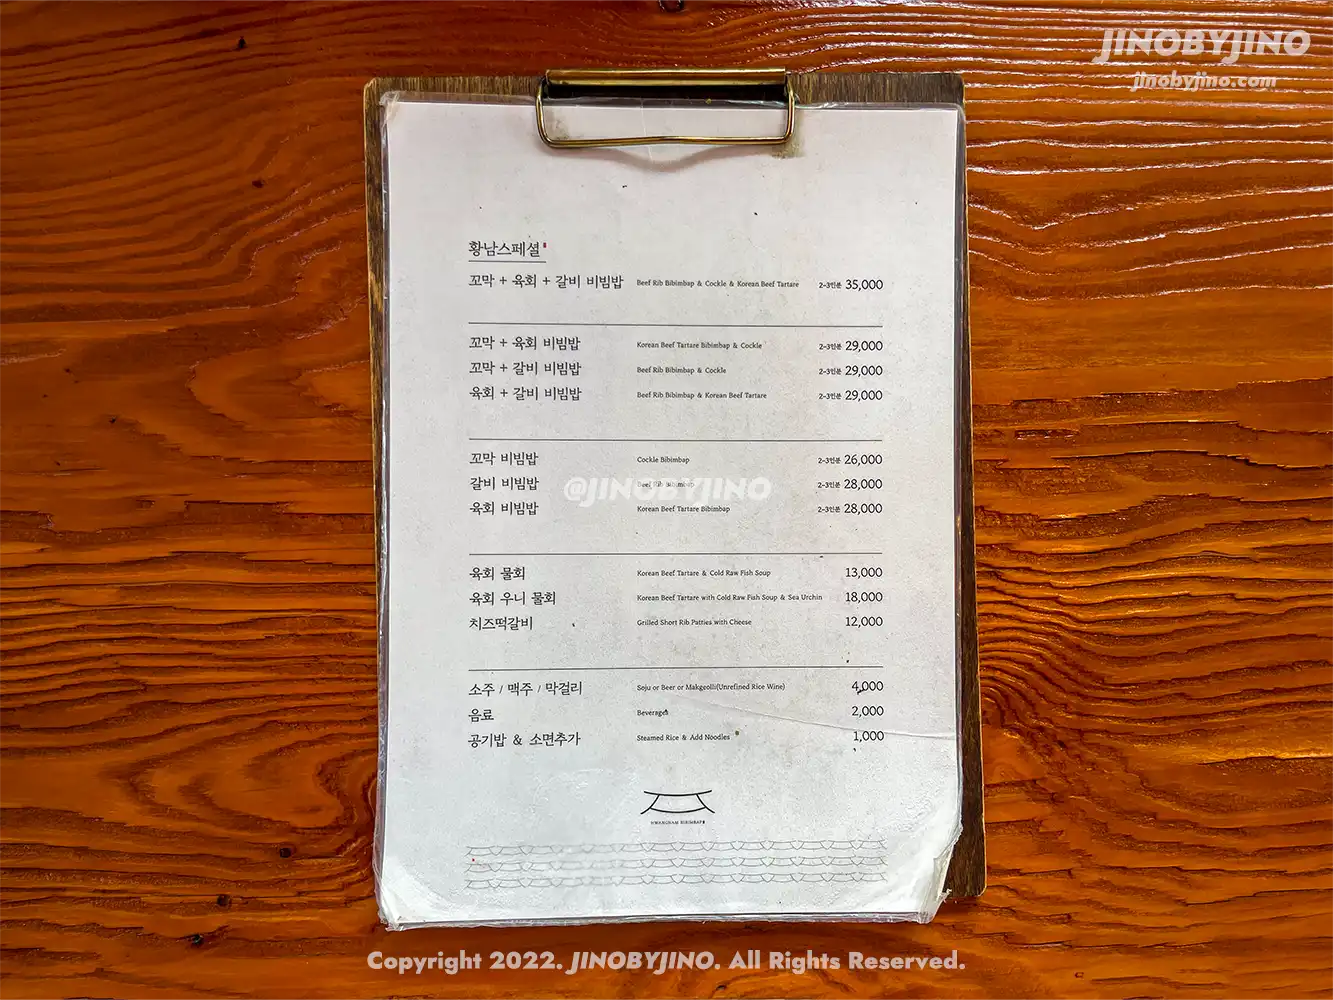 JINOBYJINO
jinobyjino.com
황남스페셜
꼬막 + 육회 + 갈비 비빔밥 Beef Rib Bibimbap & Cockle & Korean Beef Tartare 2-3인분 35,000
꼬막 + 육회 비빔밥 Korean Beef Tartare Bibimbap & Cockle 2-3인분 29,000
꼬막 + 갈비 비빔밥 Beef Rib Bibimbap & Cockle 2-3인분 29,000
육회 + 갈비 비빔밥 Beef Rib Bibimbap & Korean Beef Tartare 2-3인분 29,000
꼬막 비빔밥 Cockle Bibimbap 2-3인분 26,000
갈비 비빔밥 Beef Rib Bibimbap 2-3인분 28,000
@JINOBYJINO
육회 비빔밥 Korean Beef Tartare Bibimbap 2-3인분 28,000
육회 물회 Korean Beef Tartare & Cold Raw Fish Soup 13,000
육회 우니 물회 Korean Beef Tartare with Cold Raw Fish Soup & Sea Urchin 18,000
치즈떡갈비 Grilled Short Rib Patties with Cheese 12,000
소주 / 맥주 / 막걸리 Soju or Beer or Makgeolli(Unrefined Rice Wine) 4,000
음료 Beverages 2,000
공기밥 & 소면추가 Steamed Rice & Add Noodles 1,000
HWANGNAM BIBIMBAP
Copyright 2022. JINOBYJINO. All Rights Reserved.